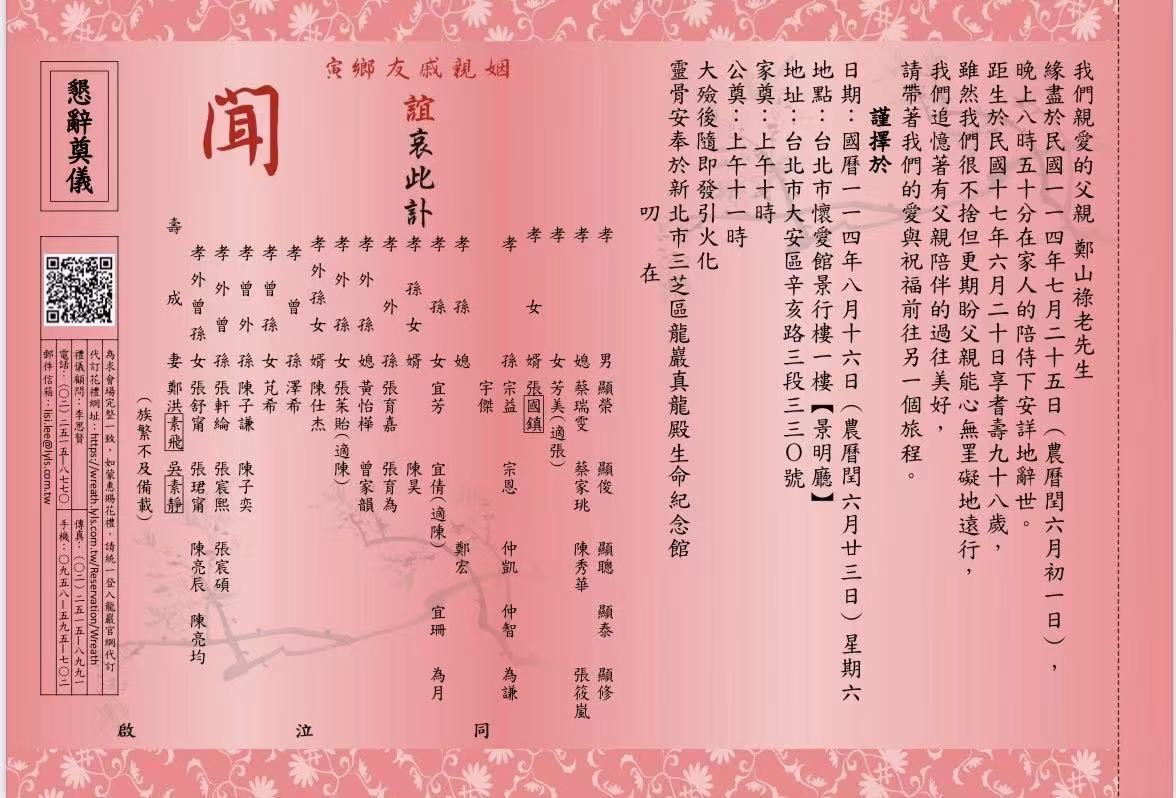 我們親愛的父親 鄭山祿老先生
緣盡於民國一一四年七月二十五日（農曆閏六月初一日），
晚上八時五十分在家人的陪侍下安詳地辭世。
距生於民國十七年六月二十日享耆壽九十八歲，
雖然我們很不捨但更期盼父親能心無罣礙地遠行，
我們追憶著有父親陪伴的過往美好，
請帶著我們的愛與祝福前往另一個旅程。
謹擇於
日期：國曆一一四年八月十六日（農曆閏六月廿三日）星期六
地點：台北市懷愛館景行樓一樓【景明廳】
地址：台北市大安區辛亥路三段三三〇號
家奠：上午十時
公奠：上午十一時
大殮後隨即發引火化
靈骨安奉於新北市三芝區龍巖真龍殿生命紀念館
叨在
姻親戚友鄉寅
誼哀此訃
聞
孝男 顯榮 顯俊 顯聰 顯泰 顯修
孝媳 蔡瑞雯 蔡家珧 陳秀華 張筱嵐
孝女 芳美（適張）
孝女婿 張國鎮
孝孫 宗益 宗恩 仲凱 仲智 為謙
宇傑
孝孫媳 鄭宏
孝孫女 宜芳 宜倩（適陳） 宜珊 為月
孝孫女婿 陳昊
孝外孫 張育嘉 張育為
孝外孫媳 黃怡樺 曾家韻
孝外孫女 張茱貽（適陳）
孝外孫女婿 陳仕杰
孝曾孫 澤希
孝曾孫女 芃希
孝曾外孫 陳子謙 陳子奕
孝外曾孫 張軒綸 張宸熙 張宸碩
孝外曾孫女 張舒甯 張珺甯 陳亮辰 陳亮均
壽成妻 鄭洪素飛 吳素靜
（族繁不及備載）
同泣啟
懇辭奠儀
為求會場完整一致，如蒙惠賜花禮，請統一登入龍巖官網代訂
代訂花禮網址：https://wreath.lyls.com.tw/Reservation/Wreath
禮儀顧問：李思賢
傳真：（〇二）二五一五—八九九一
電話：（〇二）二五一五—八七七〇
手機：〇九五八—五九五—七〇二
郵件信箱：lisi.lee@lyls.com.tw